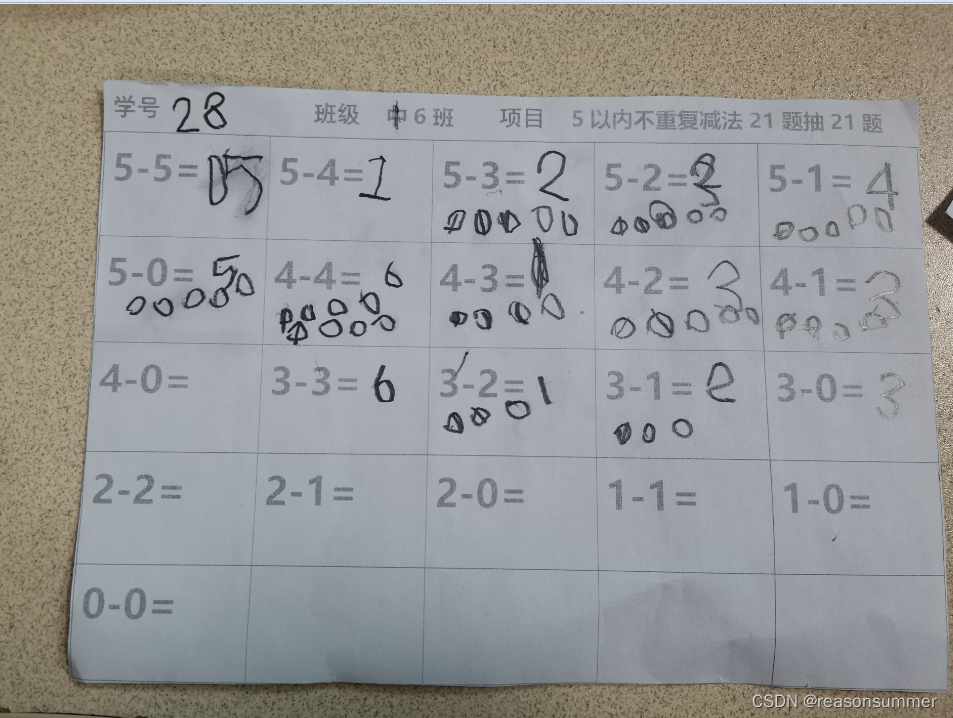 学号 28 班级 中6班 项目 5以内不重复减法21题抽21题
5-5= 5-4=1 5-3=2 5-2= 5-1=4
5-0=5 4-4=6 4-3= 4-2=3 4-1=3
4-0= 3-3=6 3-2=1 3-1=e 3-0=3
2-2= 2-1= 2-0= 1-1= 1-0=
0-0=
CSDN @reasonsummer